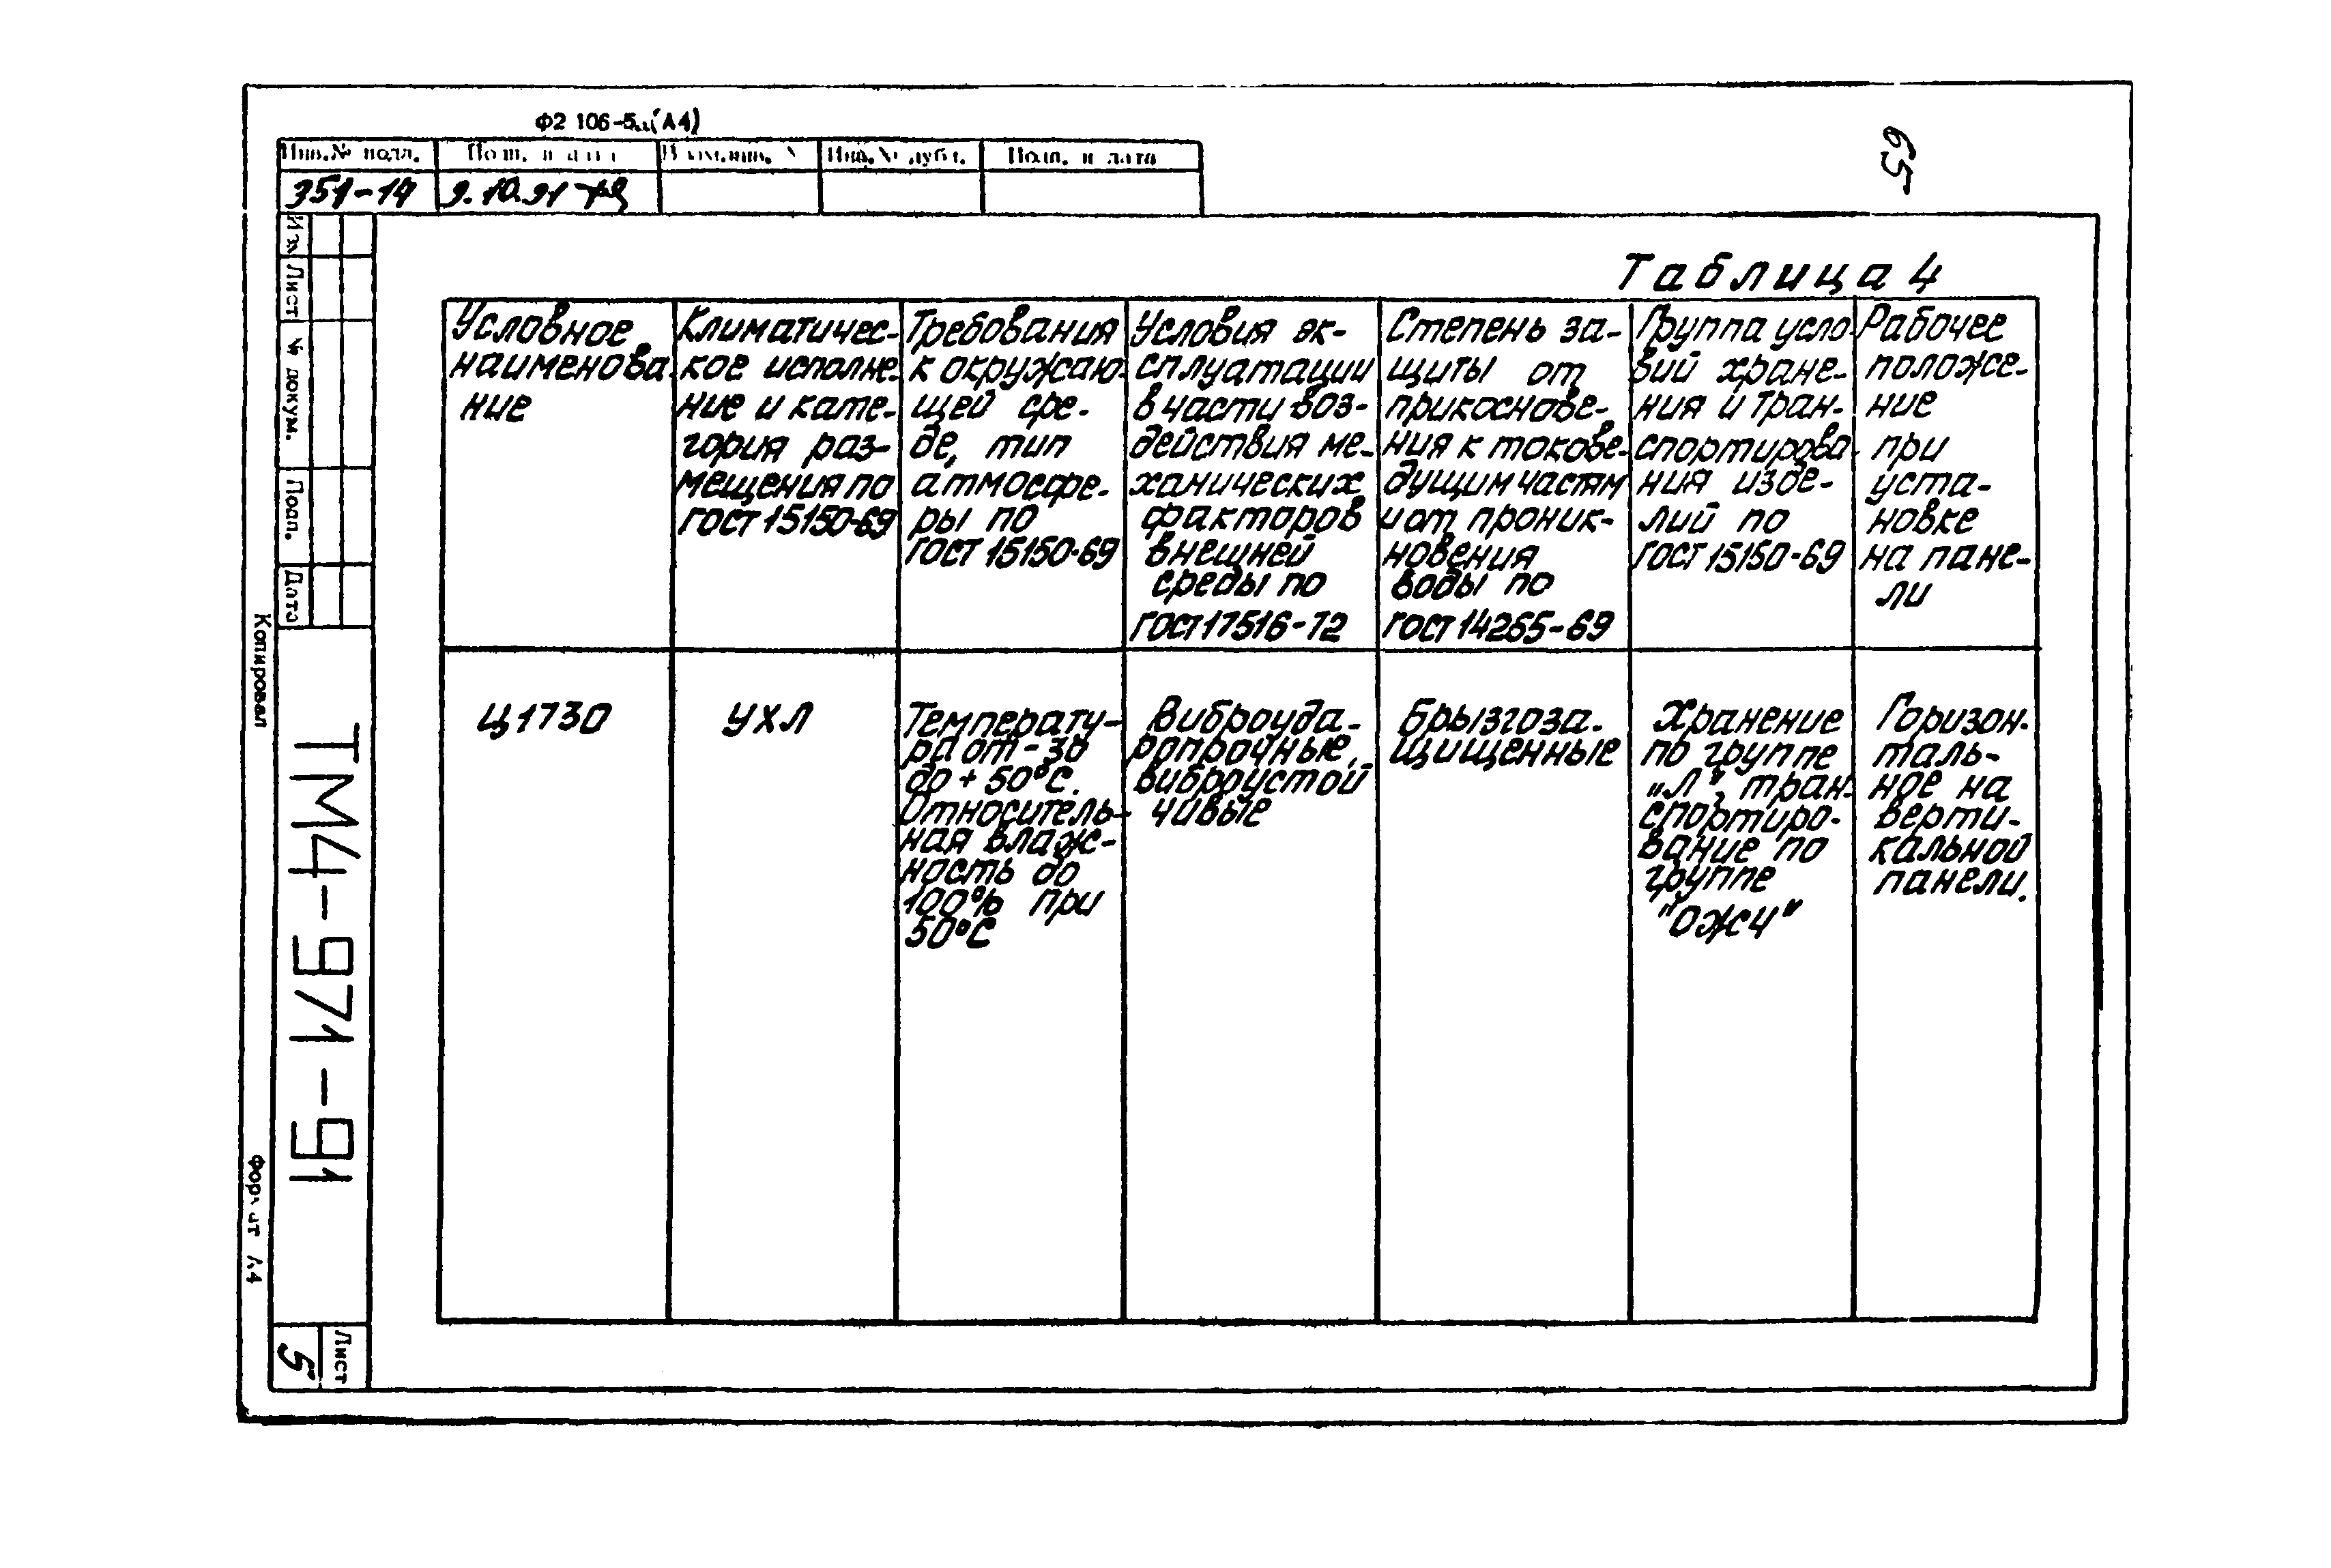 Ф2 106-5а (А4)
Инв.№ подл. Подп. и дата Взам.инв. № Инв.№ дубл. Подп. и дата
351-14 9.10.91
59
Изм Лист № докум. Подп. Дата
Копировал
ТМ4-971-91
Формат А4
Лист
5
Таблица 4
Условное
наименова
ние
Климатичес-
кое исполне-
ние и кате-
гория раз-
мещения по
ГОСТ 15150-69
Требования
к окружаю-
щей сре-
де, тип
атмосфе-
ры по
ГОСТ 15150-69
Условия эк-
сплуатации
в части воз-
действия ме-
ханических
факторов
внешней
среды по
ГОСТ 17516-72
Степень за-
щиты от
прикоснове-
ния к токове-
дущим частям
и от проник-
новения
воды по
ГОСТ 14265-69
Группа усло-
вий хране-
ния и тран-
спортирова-
ния изде-
лий по
ГОСТ 15150-69
Рабочее
положе-
ние
при
уста-
новке
на пане-
ли
Ц1730
УХЛ
Температу-
ра от -30
до +50°С.
Относитель-
ная влаж-
ность до
100% при
50°С
Виброуда-
ропрочные,
виброустой
чивые
Брызгоза-
щищенные
Хранение
по группе
„Л", тран-
спортиро-
вание по
группе
"ОЖ4"
Горизон-
таль-
ное на
верти-
кальной
панели.